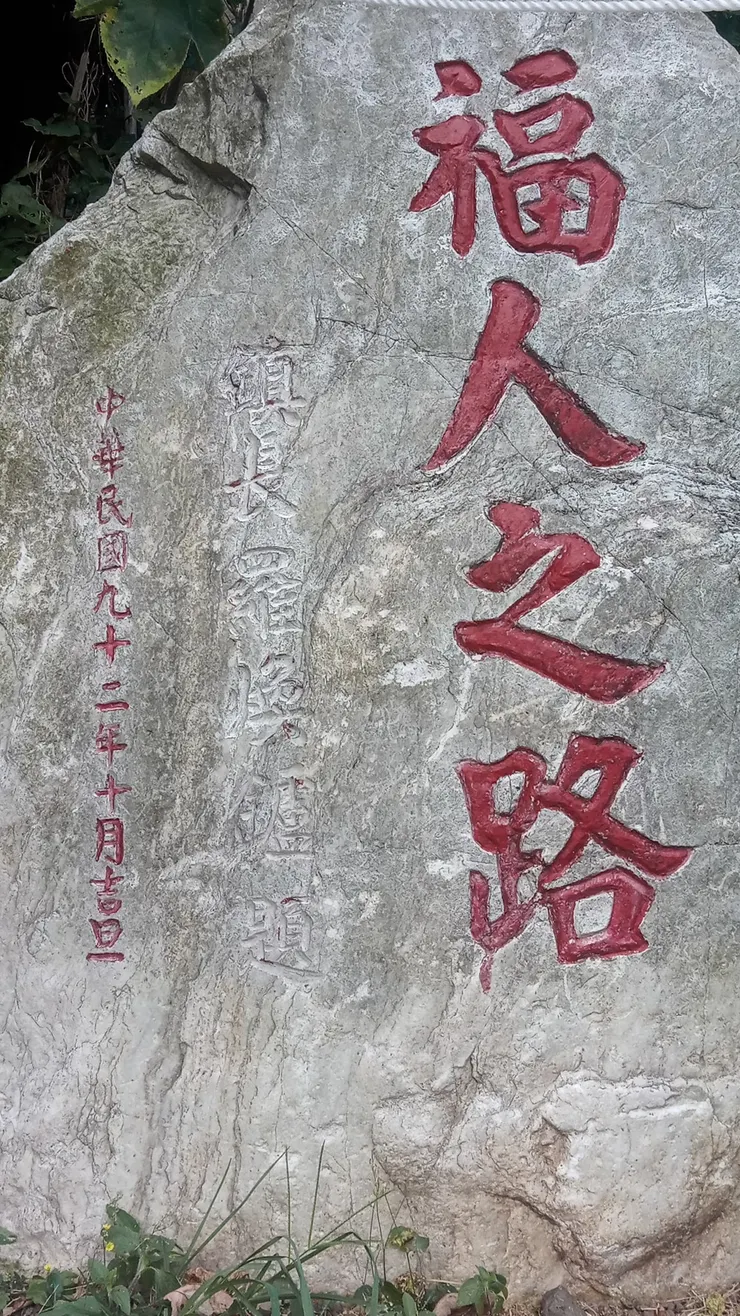 福人之路
鎮長羅題
中華民國九十二年十月吉旦